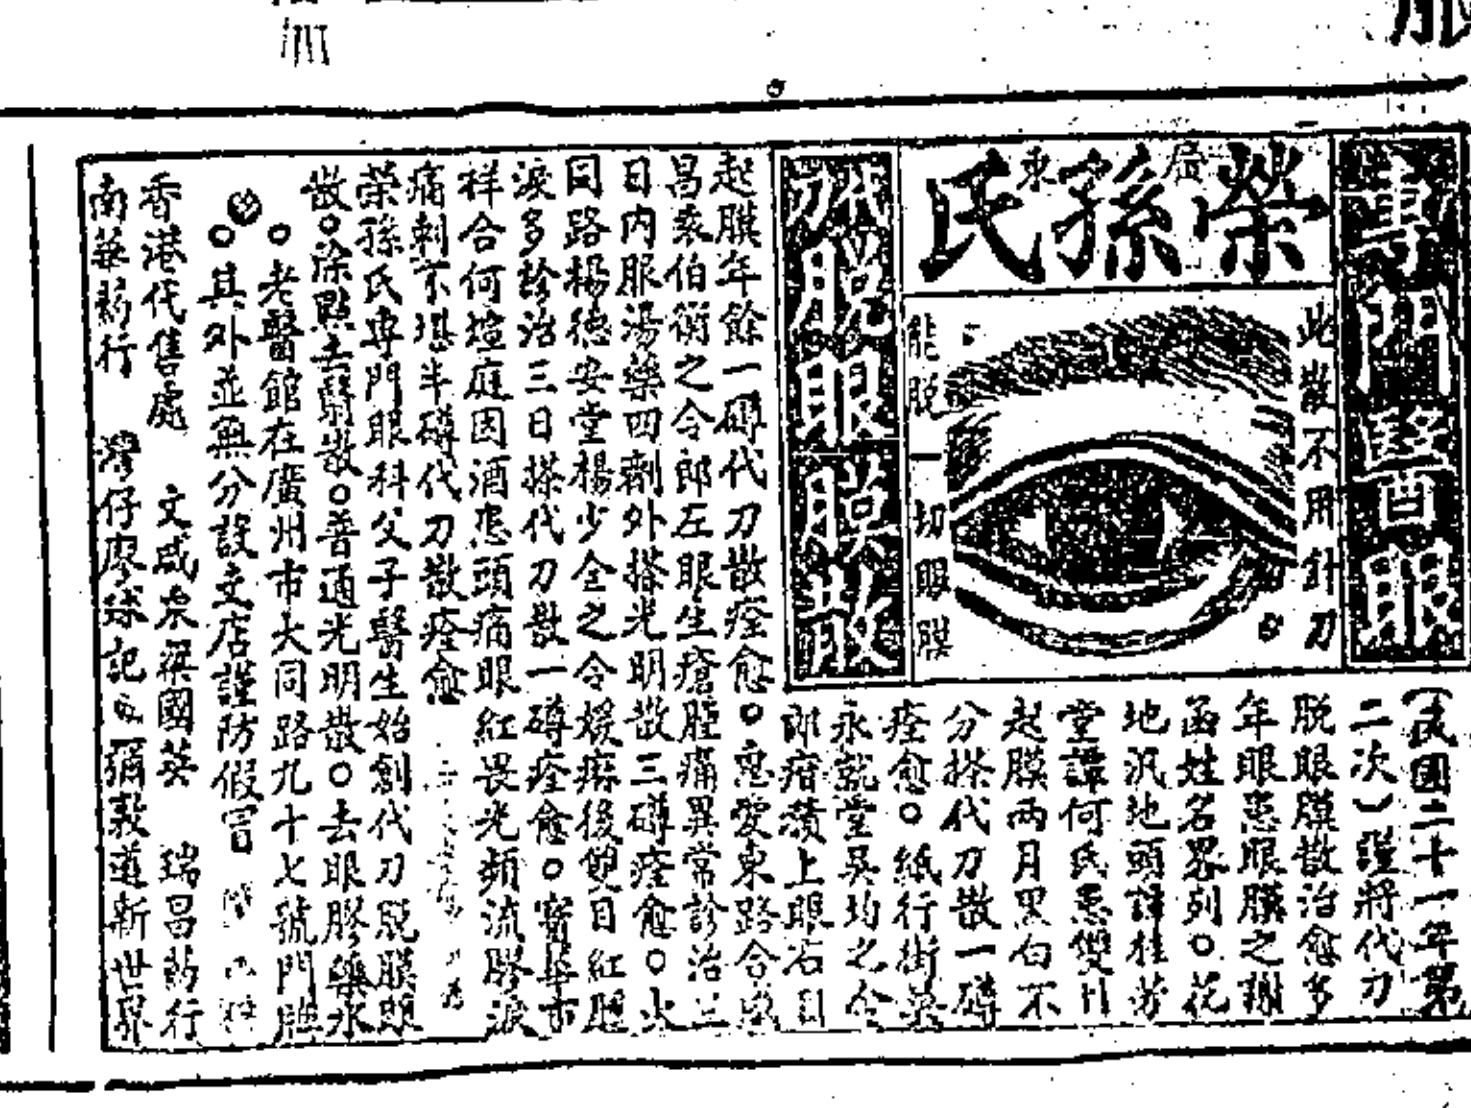 專門醫眼
榮孫氏
此散不用針刀
能脫一切眼膜
脫眼膜散
(民國二十一年第
二次)謹將代刀
脫眼膜散治愈多
年眼患眼膜之謝
函姓名畧列○花
地汎地頭譚桂芳
堂譚何氏患雙目
起膜兩月黑白不
分搽代刀散一樽
痊愈○紙行街
永就堂吳均之令
郎疳積上眼右目
起膜年餘一樽代刀散痊愈○惠愛東路合
昌泰伯衡之令郎左眼生瘡腫痛異常診治三
日內服湯藥四劑外搽光明散三樽痊愈○大
同路楊德安堂楊少全之令媛痳後雙目紅腫
淚多診治三日搽代刀散一樽痊愈○寳華市
祥合何煊庭因酒患頭痛眼紅畏光頻流膠淚
痛刺不堪半樽代刀散痊愈
榮孫氏專門眼科父子醫生始創代刀脫膜眼
散○除點去翳散○普通光明散○去眼膠藥水
○老醫館在廣州市大同路九十七號門牌
○其外並無分設支店謹防假冒
香港代售處 文咸東 瑞昌葯行
南華葯行 灣仔廖 記 彌敦道新世界